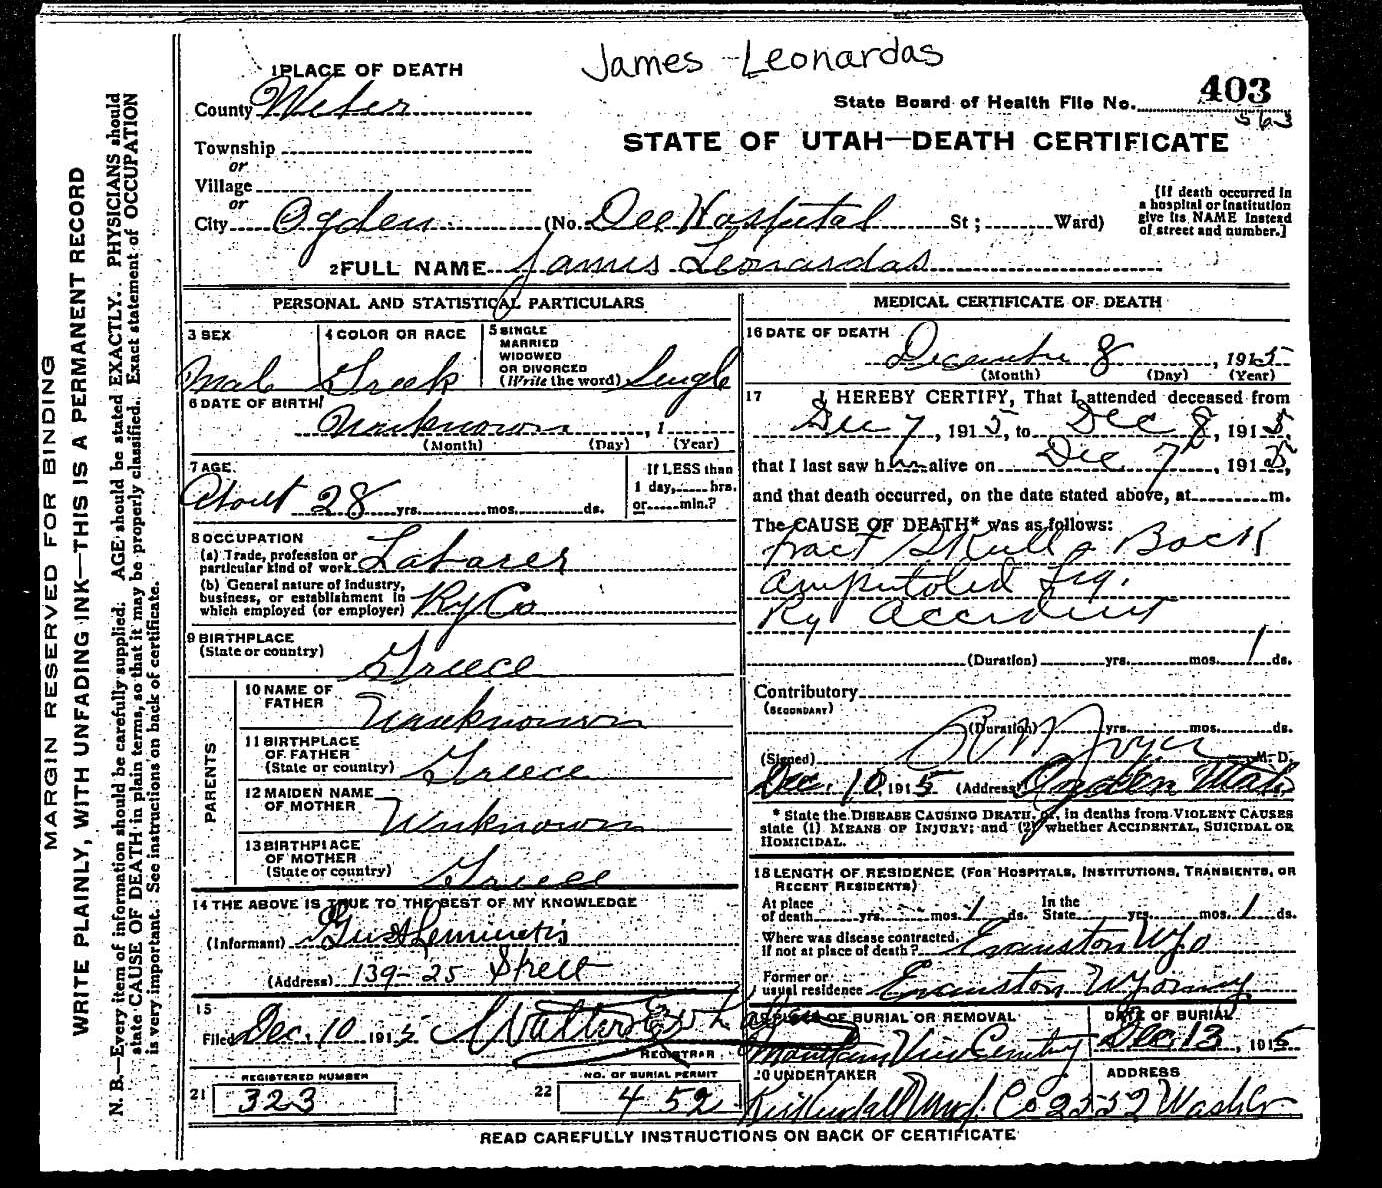 James Leonardas
1 PLACE OF DEATH
County Weber
State Board of Health File No. 403
563
STATE OF UTAH—DEATH CERTIFICATE
Township
or
Village
or
City Ogden (No. Dee Hospital St; Ward)
[If death occurred in a hospital or institution give its NAME instead of street and number.]
2 FULL NAME James Leonardas
PERSONAL AND STATISTICAL PARTICULARS
3 SEX
Male
4 COLOR OR RACE
Greek
5 SINGLE
MARRIED
WIDOWED
OR DIVORCED
(Write the word) Single
6 DATE OF BIRTH
Unknown, 1
(Month) (Day) (Year)
7 AGE
About 28 yrs. mos. ds.
If LESS than
1 day, hrs.
or min.?
8 OCCUPATION
(a) Trade, profession or
particular kind of work Laborer
(b) General nature of industry,
business, or establishment in
which employed (or employer) Ry Co
9 BIRTHPLACE
(State or country)
Greece
PARENTS
10 NAME OF
FATHER
Unknown
11 BIRTHPLACE
OF FATHER
(State or country) Greece
12 MAIDEN NAME
OF MOTHER
Unknown
13 BIRTHPLACE
OF MOTHER
(State or country) Greece
14 THE ABOVE IS TRUE TO THE BEST OF MY KNOWLEDGE
(Informant) Gust
(Address) 139-25 Street
15
Filed Dec. 10 1915
REGISTRAR
21 REGISTERED NUMBER
323
22 NO. OF BURIAL PERMIT
452
MEDICAL CERTIFICATE OF DEATH
16 DATE OF DEATH
December 8, 1915
(Month) (Day) (Year)
17 I HEREBY CERTIFY, That I attended deceased from
Dec 7, 1915, to Dec 8, 1915,
that I last saw him alive on Dec 7, 1915,
and that death occurred, on the date stated above, at m.
The CAUSE OF DEATH* was as follows:
fract Skull & Back
amputated Leg.
Ry Accident
(Duration) yrs. mos. 1 ds.
Contributory
(SECONDARY)
(Duration) yrs. mos. ds.
(Signed) M. D.
Dec. 10, 1915 (Address) Ogden Utah
* State the DISEASE CAUSING DEATH, or, in deaths from VIOLENT CAUSES
state (1) MEANS OF INJURY; and (2) whether ACCIDENTAL, SUICIDAL OR
HOMICIDAL.
18 LENGTH OF RESIDENCE (FOR HOSPITALS, INSTITUTIONS, TRANSIENTS, OR
RECENT RESIDENTS)
At place
of death yrs. mos. 1 ds.
In the
State yrs. mos. 1 ds.
Where was disease contracted,
if not at place of death? Evanston Wyo
Former or
usual residence Evanston Wyoming
19 PLACE OF BURIAL OR REMOVAL
Mountain View Cemetry
DATE OF BURIAL
Dec. 13, 1915
20 UNDERTAKER
Kirkendall Und. Co
ADDRESS
2552 Wash
READ CAREFULLY INSTRUCTIONS ON BACK OF CERTIFICATE
MARGIN RESERVED FOR BINDING
WRITE PLAINLY, WITH UNFADING INK—THIS IS A PERMANENT RECORD
N. B.—Every item of information should be carefully supplied. AGE should be stated EXACTLY. PHYSICIANS should
state CAUSE OF DEATH in plain terms, so that it may be properly classified. Exact statement of OCCUPATION
is very important. See instructions on back of certificate.